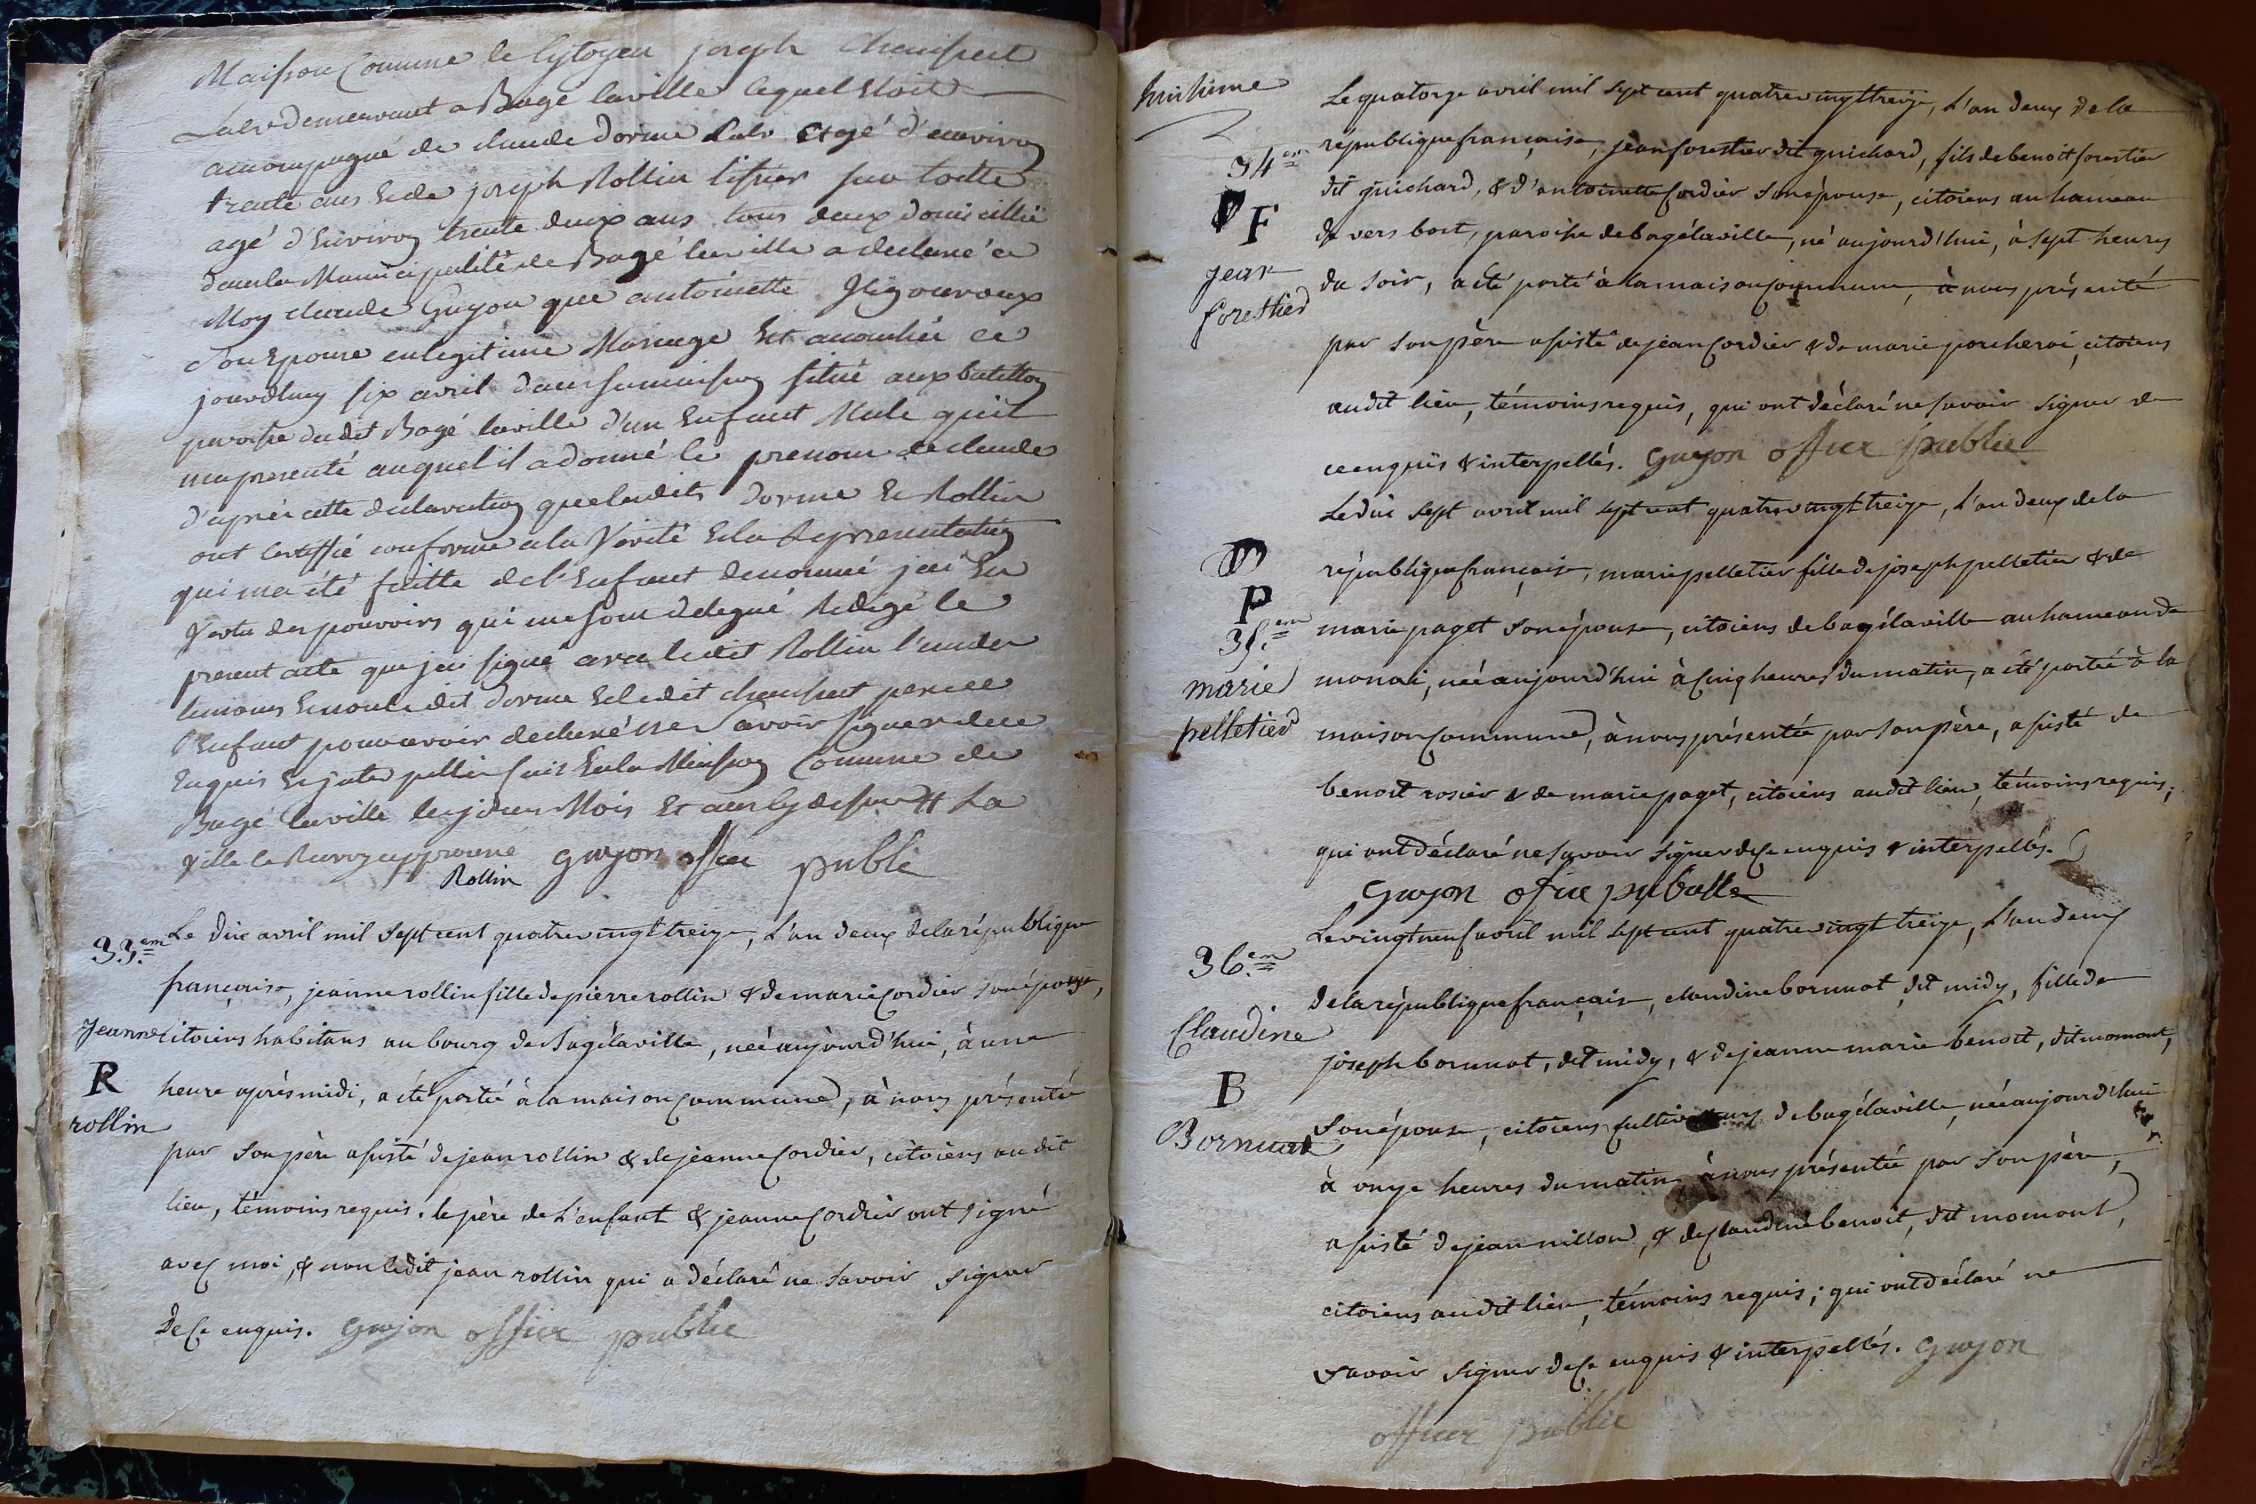 Maison Comune le Cytoyen joseph
Labr demeurant a Bagé laville lequel Etoit
accompagné de claude dorme Labr agé d'environ
trente ans Et de joseph Rollin tissier
agé d'Environ trente deux ans tous deux domicillié
dans la Municipalité de Bagé laville a declaré a
Moy claude Guyon que antoinette
son Epouse en legitime Mariage Est accouchée ce
jourdhuy six avril dans sa maison situé aux
paroisse dudit Bagé laville d'un Enfant Male qu'il
ma presenté auquel il a donné le prenom de claude
d'après cette declaration que lesdits dorme Et Rollin
ont Certiffié conforme a la Vérité Et la Representation
qui ma été faitte de l'Enfant denommé jai En
Vertu des pouvoirs qui me sont délegué Redigé le
present acte que jai signé avec ledit Rollin l'un des
temoins Et non le dit dorme Et ledit pere de
l'Enfant pour avoir declaré ne savoir signer de ce
Enquis Et jnterpellés fait En la Maison Comune de
Bagé laville les jour Mois Et an cy dessus # La
Ville le Renvoy approuvé Guyon offier publi
Rollin
33.em
Le dix avril mil sept cent quatre vingt treize, L'an deux de la république
française, jeanne rollin fille de pierre rollin & de marie Cordier son épouse,
Jeanne
citoiens habitans au bourg de Bagélaville, née aujourd'hui, à une
R
heure après midi, a été portée à la maison Commune, à nous présentée
rollin
par son père assisté de jean rollin & de jeanne Cordier, citoiens au dit
lieu, témoins requis. le père de L'enfant & jeanne Cordier ont signé
avec moi, & non ledit jean rollin qui a déclaré ne savoir signer
de Ce enquis. Guyon officier public
huitieme
Le quatorze avril mil sept cent quatre vingt treize, L'an deux de la
34em
république française, jean forestier dit guichard, fils de benoit forestier
F
dit guichard, & d'antoinette Cordier son épouse, citoiens au hameau
de vers bost, paroisse de bagélaville, né aujourd'hui, à sept heures
jean
forestier
du soir, a été porté à la maison Commune, à nous présenté
par son père assisté de jean Cordier & de marie porcheroi, citoiens
audit lieu, témoins requis, qui ont déclaré ne savoir signer de
ce enquis & interpellés. Guyon offier public
Le dix sept avril mil sept cent quatre vingt treize, L'an deux de la
république française, marie pelletier fille de joseph pelletier & de
P
35.em
marie paget son épouse, citoiens de bagélaville au hameau de
marie
monai, née aujourd'hui à Cinq heures du matin, a été portée à la
pelletier
maison Commune, à nous présentée par son père, assisté de
benoit rosier & de marie paget, citoiens audit lieu, témoins requis;
qui ont déclaré ne savoir signer de Ce enquis & interpellés.
Guyon ofier
Le vingt neuf avril mil sept cent quatre vingt treize, L'an deux
36.em
de la république française, claudine bornuat, dit midy, fille de
Claudine
joseph bornuat, dit midy, & de jeanne marie benoit, dit momont,
B
son épouse, citoiens Cultivateurs de bagélaville, née aujourd'hui
Bornuat
à onze heures du matin, à nous présentée par son père,
assisté de jean nillon, & de Claudine benoit, dit momont,
citoiens audit lieu, témoins requis; qui ont déclaré ne
savoir signer de Ce enquis & interpellés. Guyon
offier public